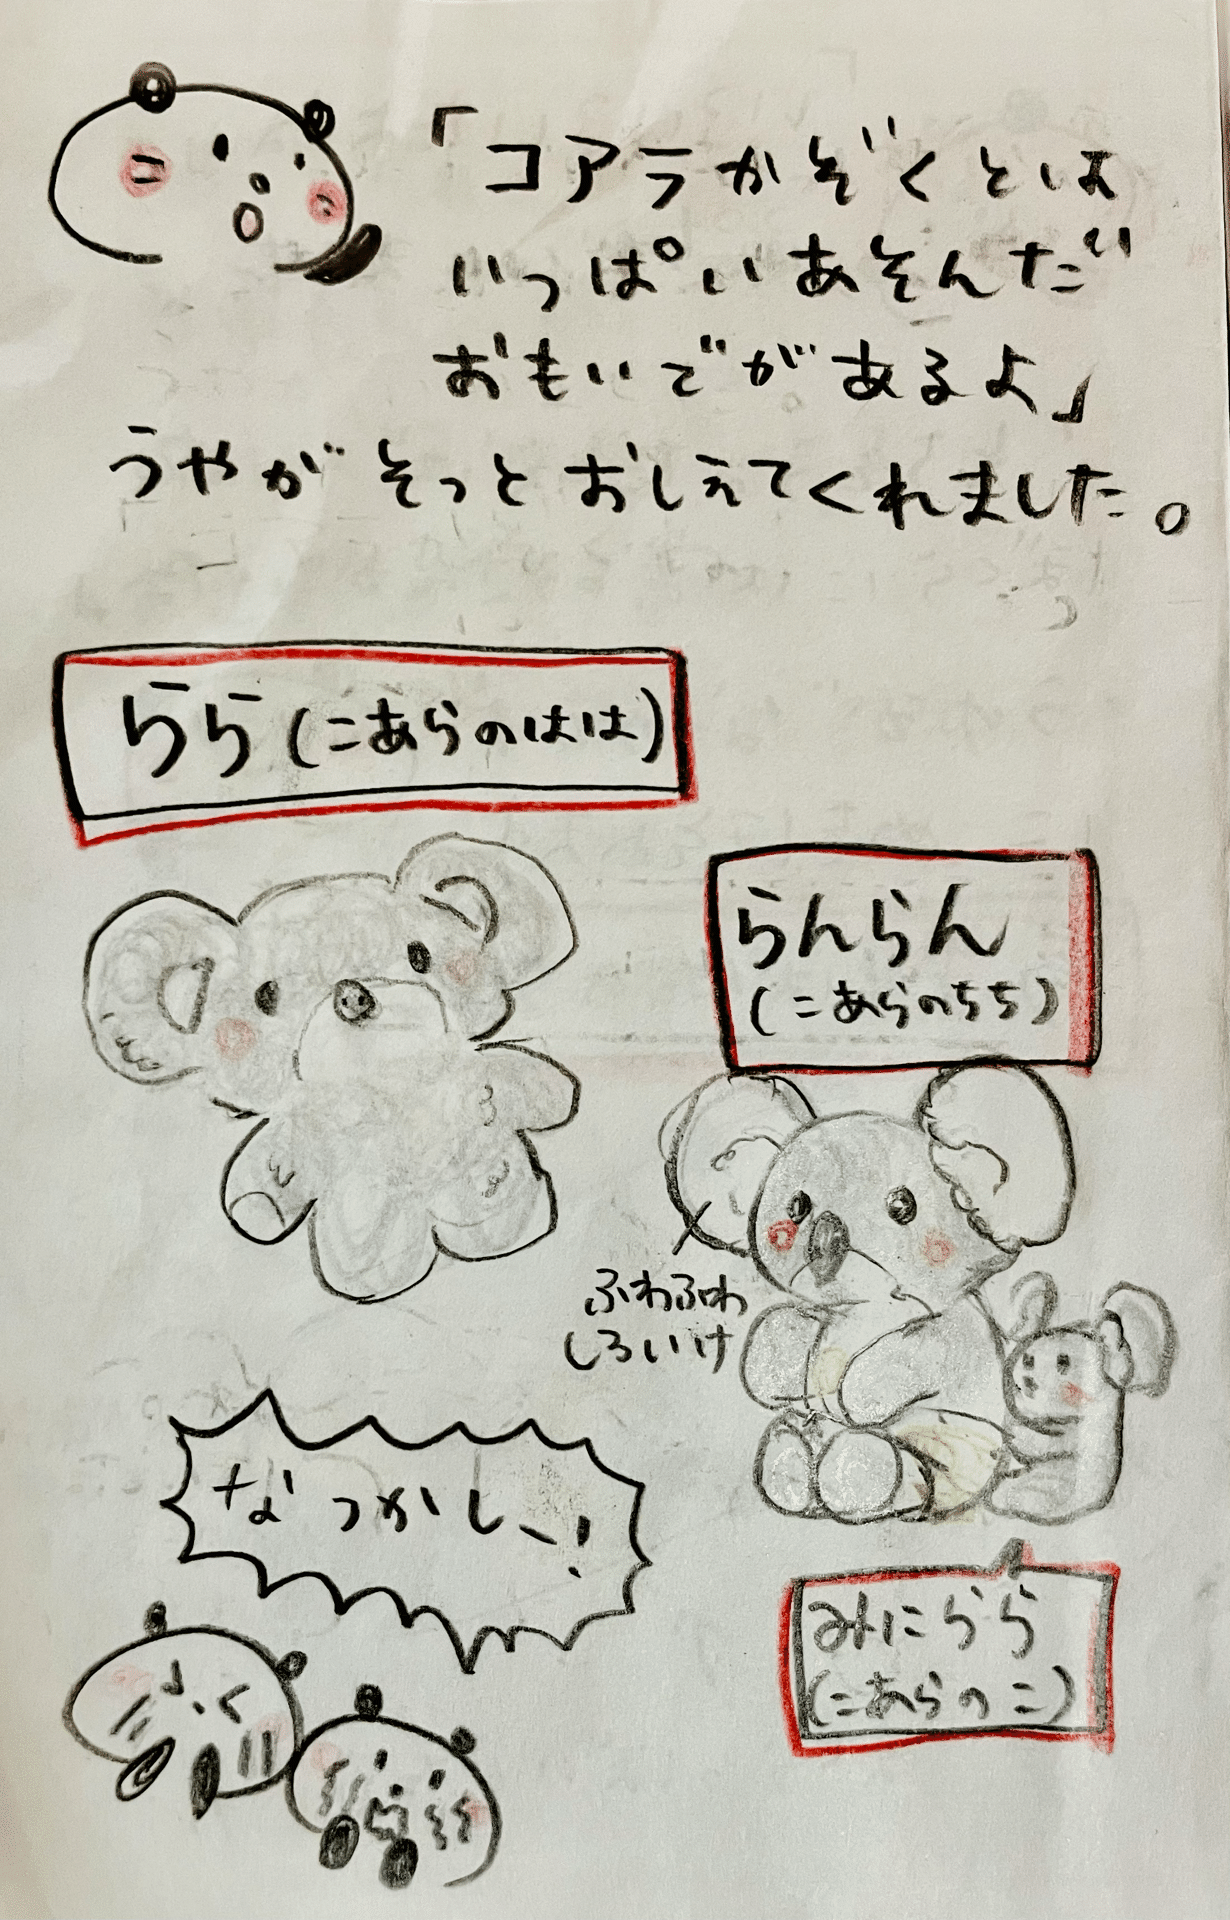 「コアラかぞくとは
いっぱいあそんだ
おもいでがあるよ」
うやがそっとおしえてくれました。
らら(こあらのはは)
らんらん
(こあらのちち)
ふわふわ
しろいけ
なつかしー!
みにらら
(こあらのこ)